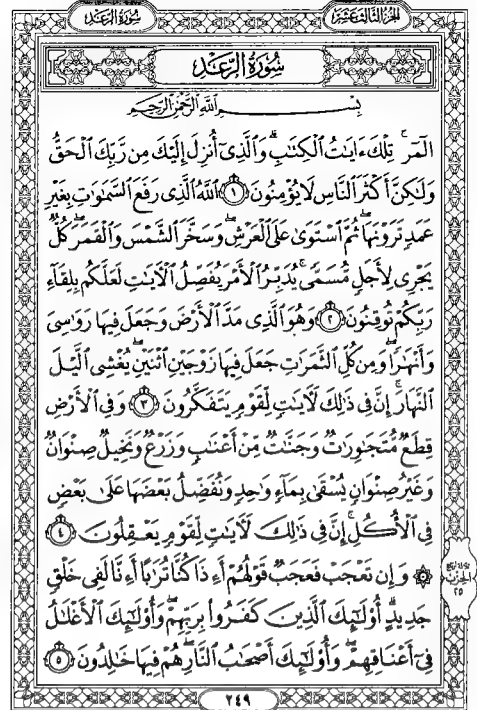 سُورَةُ الرَّعْدِ
الجُزْءُ الثَّالِثَ عَشَرَ
سُورَةُ الرَّعْدِ
بِسْمِ اللَّهِ الرَّحْمَٰنِ الرَّحِيمِ
الٓمٓر ۚ تِلْكَ ءَايَٰتُ الْكِتَٰبِ ۗ وَالَّذِىٓ أُنزِلَ إِلَيْكَ مِن رَّبِّكَ الْحَقُّ
وَلَٰكِنَّ أَكْثَرَ النَّاسِ لَا يُؤْمِنُونَ ١ اللَّهُ الَّذِى رَفَعَ السَّمَٰوَٰتِ بِغَيْرِ
عَمَدٍ تَرَوْنَهَا ۖ ثُمَّ اسْتَوَىٰ عَلَى الْعَرْشِ ۖ وَسَخَّرَ الشَّمْسَ وَالْقَمَرَ ۖ كُلٌّ
يَجْرِى لِأَجَلٍ مُّسَمًّى ۚ يُدَبِّرُ الْأَمْرَ يُفَصِّلُ الْءَايَٰتِ لَعَلَّكُم بِلِقَآءِ
رَبِّكُمْ تُوقِنُونَ ٢ وَهُوَ الَّذِى مَدَّ الْأَرْضَ وَجَعَلَ فِيهَا رَوَٰسِىَ
وَأَنْهَٰرًا ۖ وَمِن كُلِّ الثَّمَرَٰتِ جَعَلَ فِيهَا زَوْجَيْنِ اثْنَيْنِ ۖ يُغْشِى الَّيْلَ
النَّهَارَ ۚ إِنَّ فِى ذَٰلِكَ لَءَايَٰتٍ لِّقَوْمٍ يَتَفَكَّرُونَ ٣ وَفِى الْأَرْضِ
قِطَعٌ مُّتَجَٰوِرَٰتٌ وَجَنَّٰتٌ مِّنْ أَعْنَٰبٍ وَزَرْعٌ وَنَخِيلٌ صِنْوَانٌ
وَغَيْرُ صِنْوَانٍ يُسْقَىٰ بِمَآءٍ وَٰحِدٍ وَنُفَضِّلُ بَعْضَهَا عَلَىٰ بَعْضٍ
فِى الْأُكُلِ ۚ إِنَّ فِى ذَٰلِكَ لَءَايَٰتٍ لِّقَوْمٍ يَعْقِلُونَ ٤
۞ وَإِن تَعْجَبْ فَعَجَبٌ قَوْلُهُمْ أَءِذَا كُنَّا تُرَٰبًا أَءِنَّا لَفِى خَلْقٍ
جَدِيدٍ ۗ أُو۟لَٰٓئِكَ الَّذِينَ كَفَرُوا۟ بِرَبِّهِمْ ۖ وَأُو۟لَٰٓئِكَ الْأَغْلَٰلُ
فِىٓ أَعْنَاقِهِمْ ۖ وَأُو۟لَٰٓئِكَ أَصْحَٰبُ النَّارِ ۖ هُمْ فِيهَا خَٰلِدُونَ ٥
الحِزْب
٢٥
٢٤٩